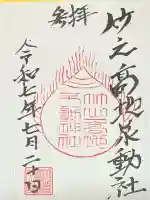 奉拝
竹之高地不動社
令和七年七月二十日